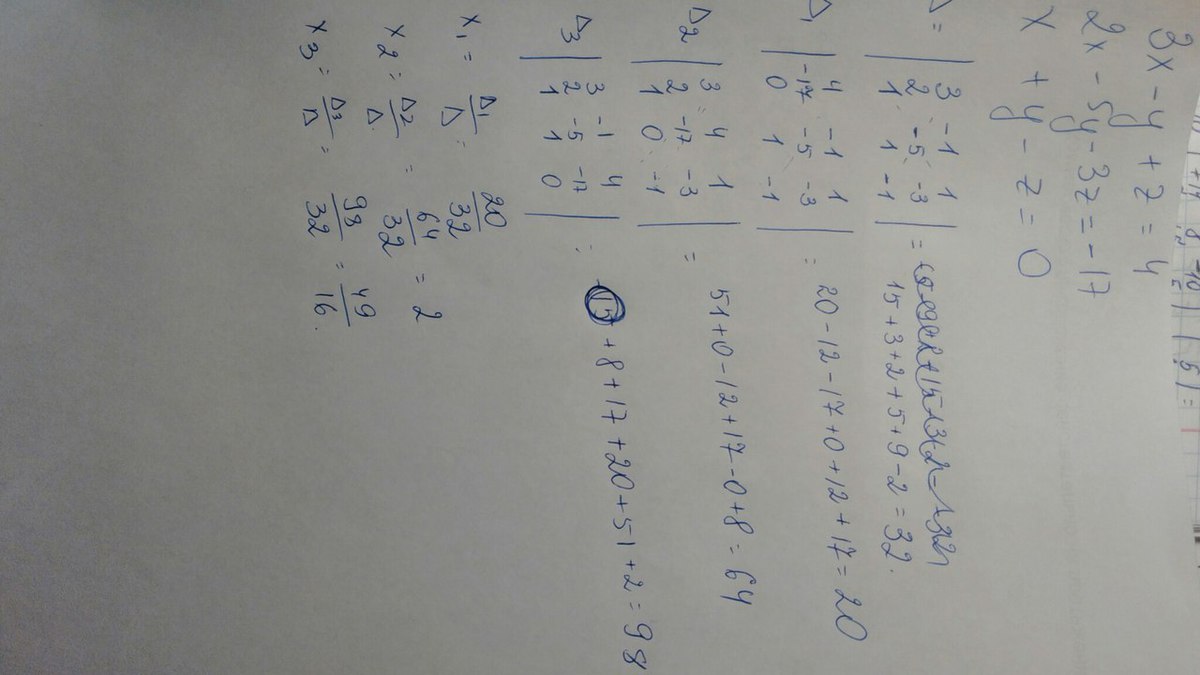 3x - y + z = 4
2x - 5y - 3z = -17
x + y - z = 0
Δ = | 3 -1 1 |
2 -5 -3
1 1 -1 | =
15 + 3 + 2 + 5 + 9 - 2 = 32.
Δ1 | 4 -1 1 |
-17 -5 -3
0 1 -1 | = 20 - 12 - 17 + 0 + 12 + 17 = 20
Δ2 | 3 4 1 |
2 -17 -3
1 0 -1 | = 51 + 0 - 12 + 17 - 0 + 8 = 64
Δ3 | 3 -1 4 |
2 -5 -17
1 1 0 | = + 8 + 17 + 20 + 51 + 2 = 98
x1 = Δ1/Δ = 20/32
x2 = Δ2/Δ = 64/32 = 2
x3 = Δ3/Δ = 98/32 = 49/16.